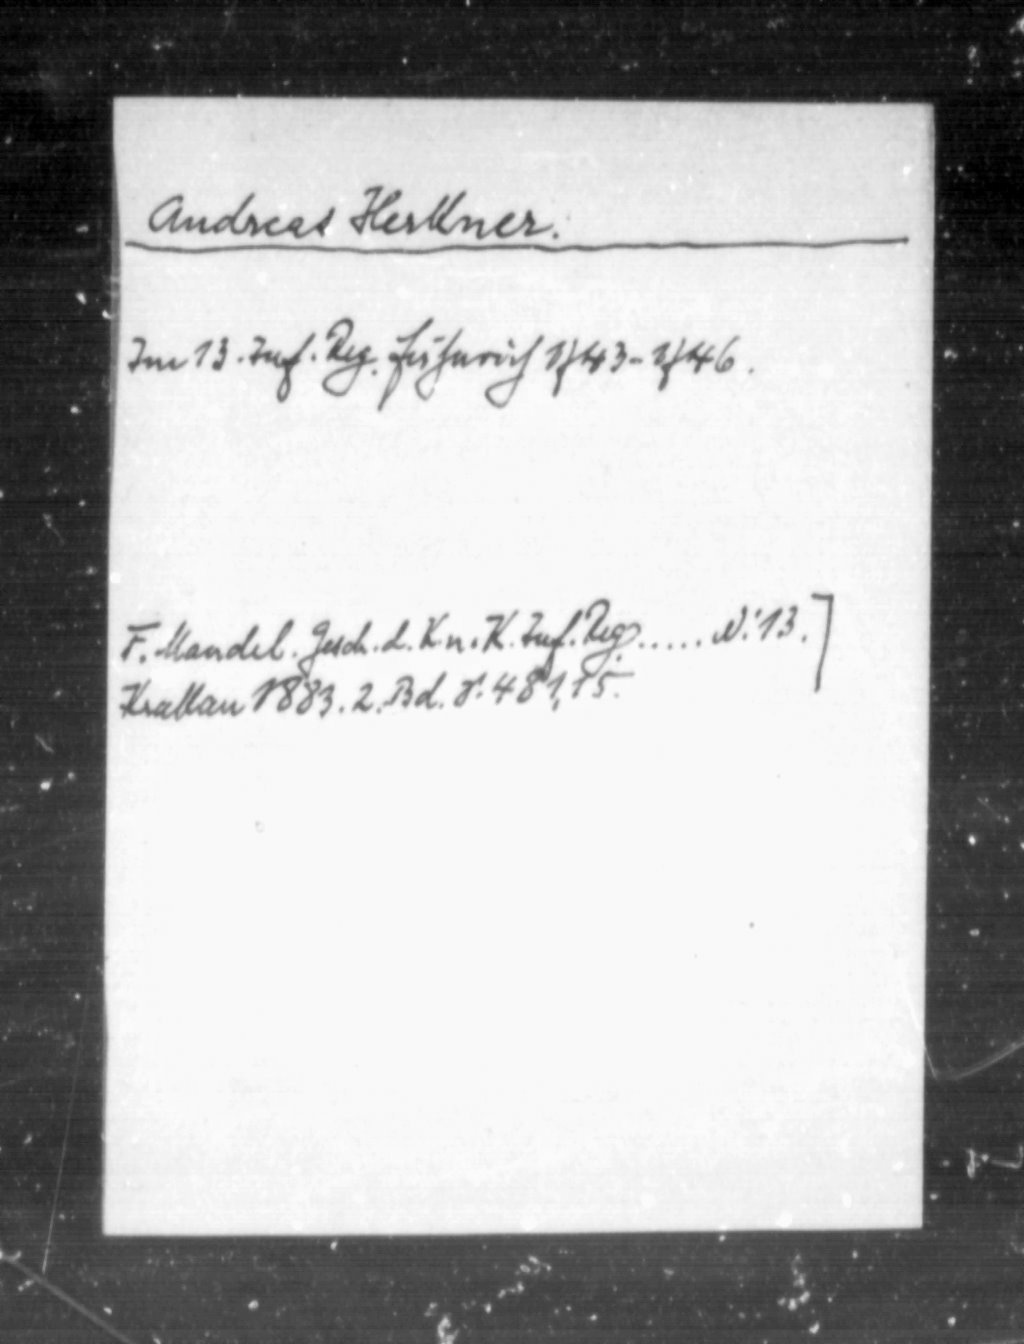 Andreas Herkner.
Im 13. Inf. Reg. Fähnrich 1743-1746.
F. Mandel. Gesch. d. K. u. K. Inf. Reg. ..... N: 13.]
Krakau 1883. 2. Bd. S. 481, 15.